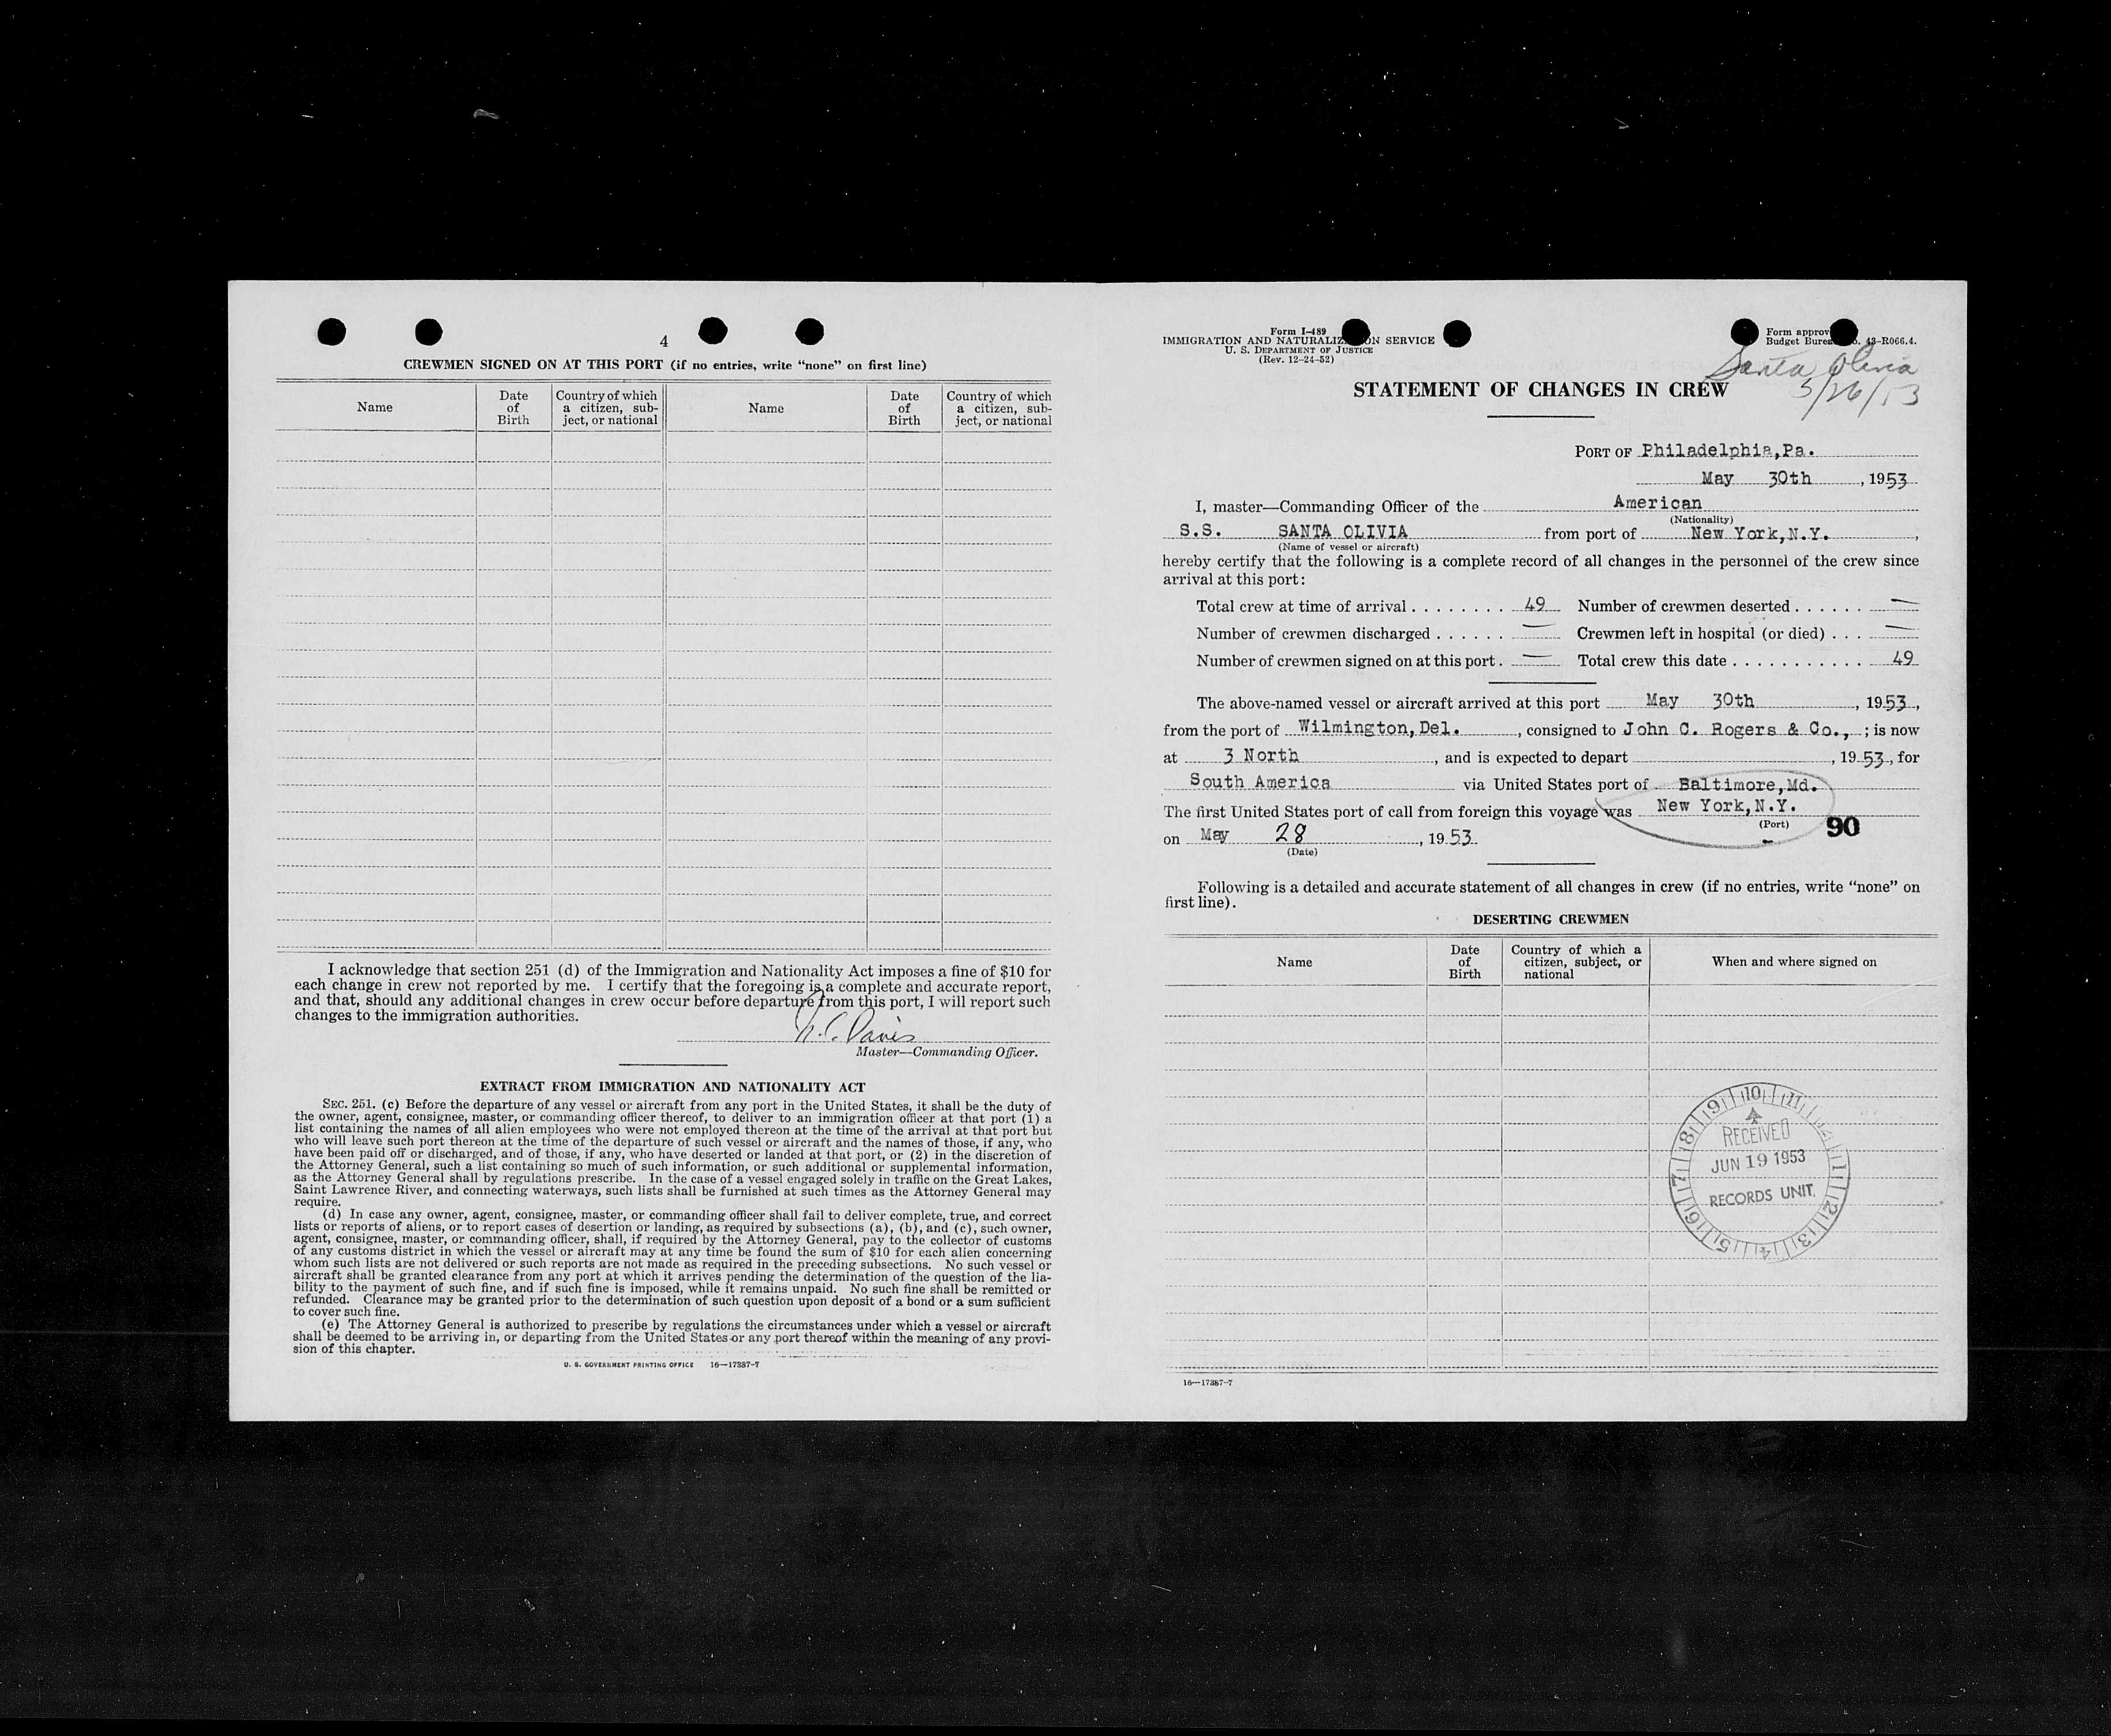 4
CREWMEN SIGNED ON AT THIS PORT (if no entries, write “none” on first line)
Name
Date of Birth
Country of which a citizen, subject, or national
Name
Date of Birth
Country of which a citizen, subject, or national
I acknowledge that section 251 (d) of the Immigration and Nationality Act imposes a fine of $10 for
each change in crew not reported by me. I certify that the foregoing is a complete and accurate report,
and that, should any additional changes in crew occur before departure from this port, I will report such
changes to the immigration authorities.
Davis
Master—Commanding Officer.
EXTRACT FROM IMMIGRATION AND NATIONALITY ACT
SEC. 251. (c) Before the departure of any vessel or aircraft from any port in the United States, it shall be the duty of
the owner, agent, consignee, master, or commanding officer thereof, to deliver to an immigration officer at that port (1) a
list containing the names of all alien employees who were not employed thereon at the time of the arrival at that port but
who will leave such port thereon at the time of the departure of such vessel or aircraft and the names of those, if any, who
have been paid off or discharged, and of those, if any, who have deserted or landed at that port, or (2) in the discretion of
the Attorney General, such a list containing so much of such information, or such additional or supplemental information,
as the Attorney General shall by regulations prescribe. In the case of a vessel engaged solely in traffic on the Great Lakes,
Saint Lawrence River, and connecting waterways, such lists shall be furnished at such times as the Attorney General may
require.
(d) In case any owner, agent, consignee, master, or commanding officer shall fail to deliver complete, true, and correct
lists or reports of aliens, or to report cases of desertion or landing, as required by subsections (a), (b), and (c), such owner,
agent, consignee, master, or commanding officer, shall, if required by the Attorney General, pay to the collector of customs
of any customs district in which the vessel or aircraft may at any time be found the sum of $10 for each alien concerning
whom such lists are not delivered or such reports are not made as required in the preceding subsections. No such vessel or
aircraft shall be granted clearance from any port at which it arrives pending the determination of the question of the lia-
bility to the payment of such fine, and if such fine is imposed, while it remains unpaid. No such fine shall be remitted or
refunded. Clearance may be granted prior to the determination of such question upon deposit of a bond or a sum sufficient
to cover such fine.
(e) The Attorney General is authorized to prescribe by regulations the circumstances under which a vessel or aircraft
shall be deemed to be arriving in, or departing from the United States or any port thereof within the meaning of any provi-
sion of this chapter.
U. S. GOVERNMENT PRINTING OFFICE 16—17387-7
Form I-489
IMMIGRATION AND SERVICE
U. S. DEPARTMENT OF JUSTICE
(Rev. 12-24-52)
Form
Budget 43-R066.4.
Santa Olivia
5/26/53
STATEMENT OF CHANGES IN CREW
PORT OF Philadelphia,Pa.
May 30th, 1953
I, master—Commanding Officer of the American
(Nationality)
S.S. SANTA OLIVIA from port of New York,N.Y.,
(Name of vessel or aircraft)
hereby certify that the following is a complete record of all changes in the personnel of the crew since
arrival at this port:
Total crew at time of arrival ........ 49 Number of crewmen deserted ...... —
Number of crewmen discharged ...... — Crewmen left in hospital (or died) ... —
Number of crewmen signed on at this port. — Total crew this date ........... 49
The above-named vessel or aircraft arrived at this port May 30th, 1953,
from the port of Wilmington,Del., consigned to John C. Rogers & Co., ; is now
at 3 North, and is expected to depart , 1953, for
South America via United States port of Baltimore,Md.
The first United States port of call from foreign this voyage was New York,N.Y.
(Port) 90
on May 28, 1953
(Date)
Following is a detailed and accurate statement of all changes in crew (if no entries, write “none” on
first line).
DESERTING CREWMEN
Name
Date of Birth
Country of which a citizen, subject, or national
When and where signed on
10 11 12 1 2 3 4 5 6 7 8 9
RECEIVED
JUN 19 1953
RECORDS UNIT.
16—17387-7